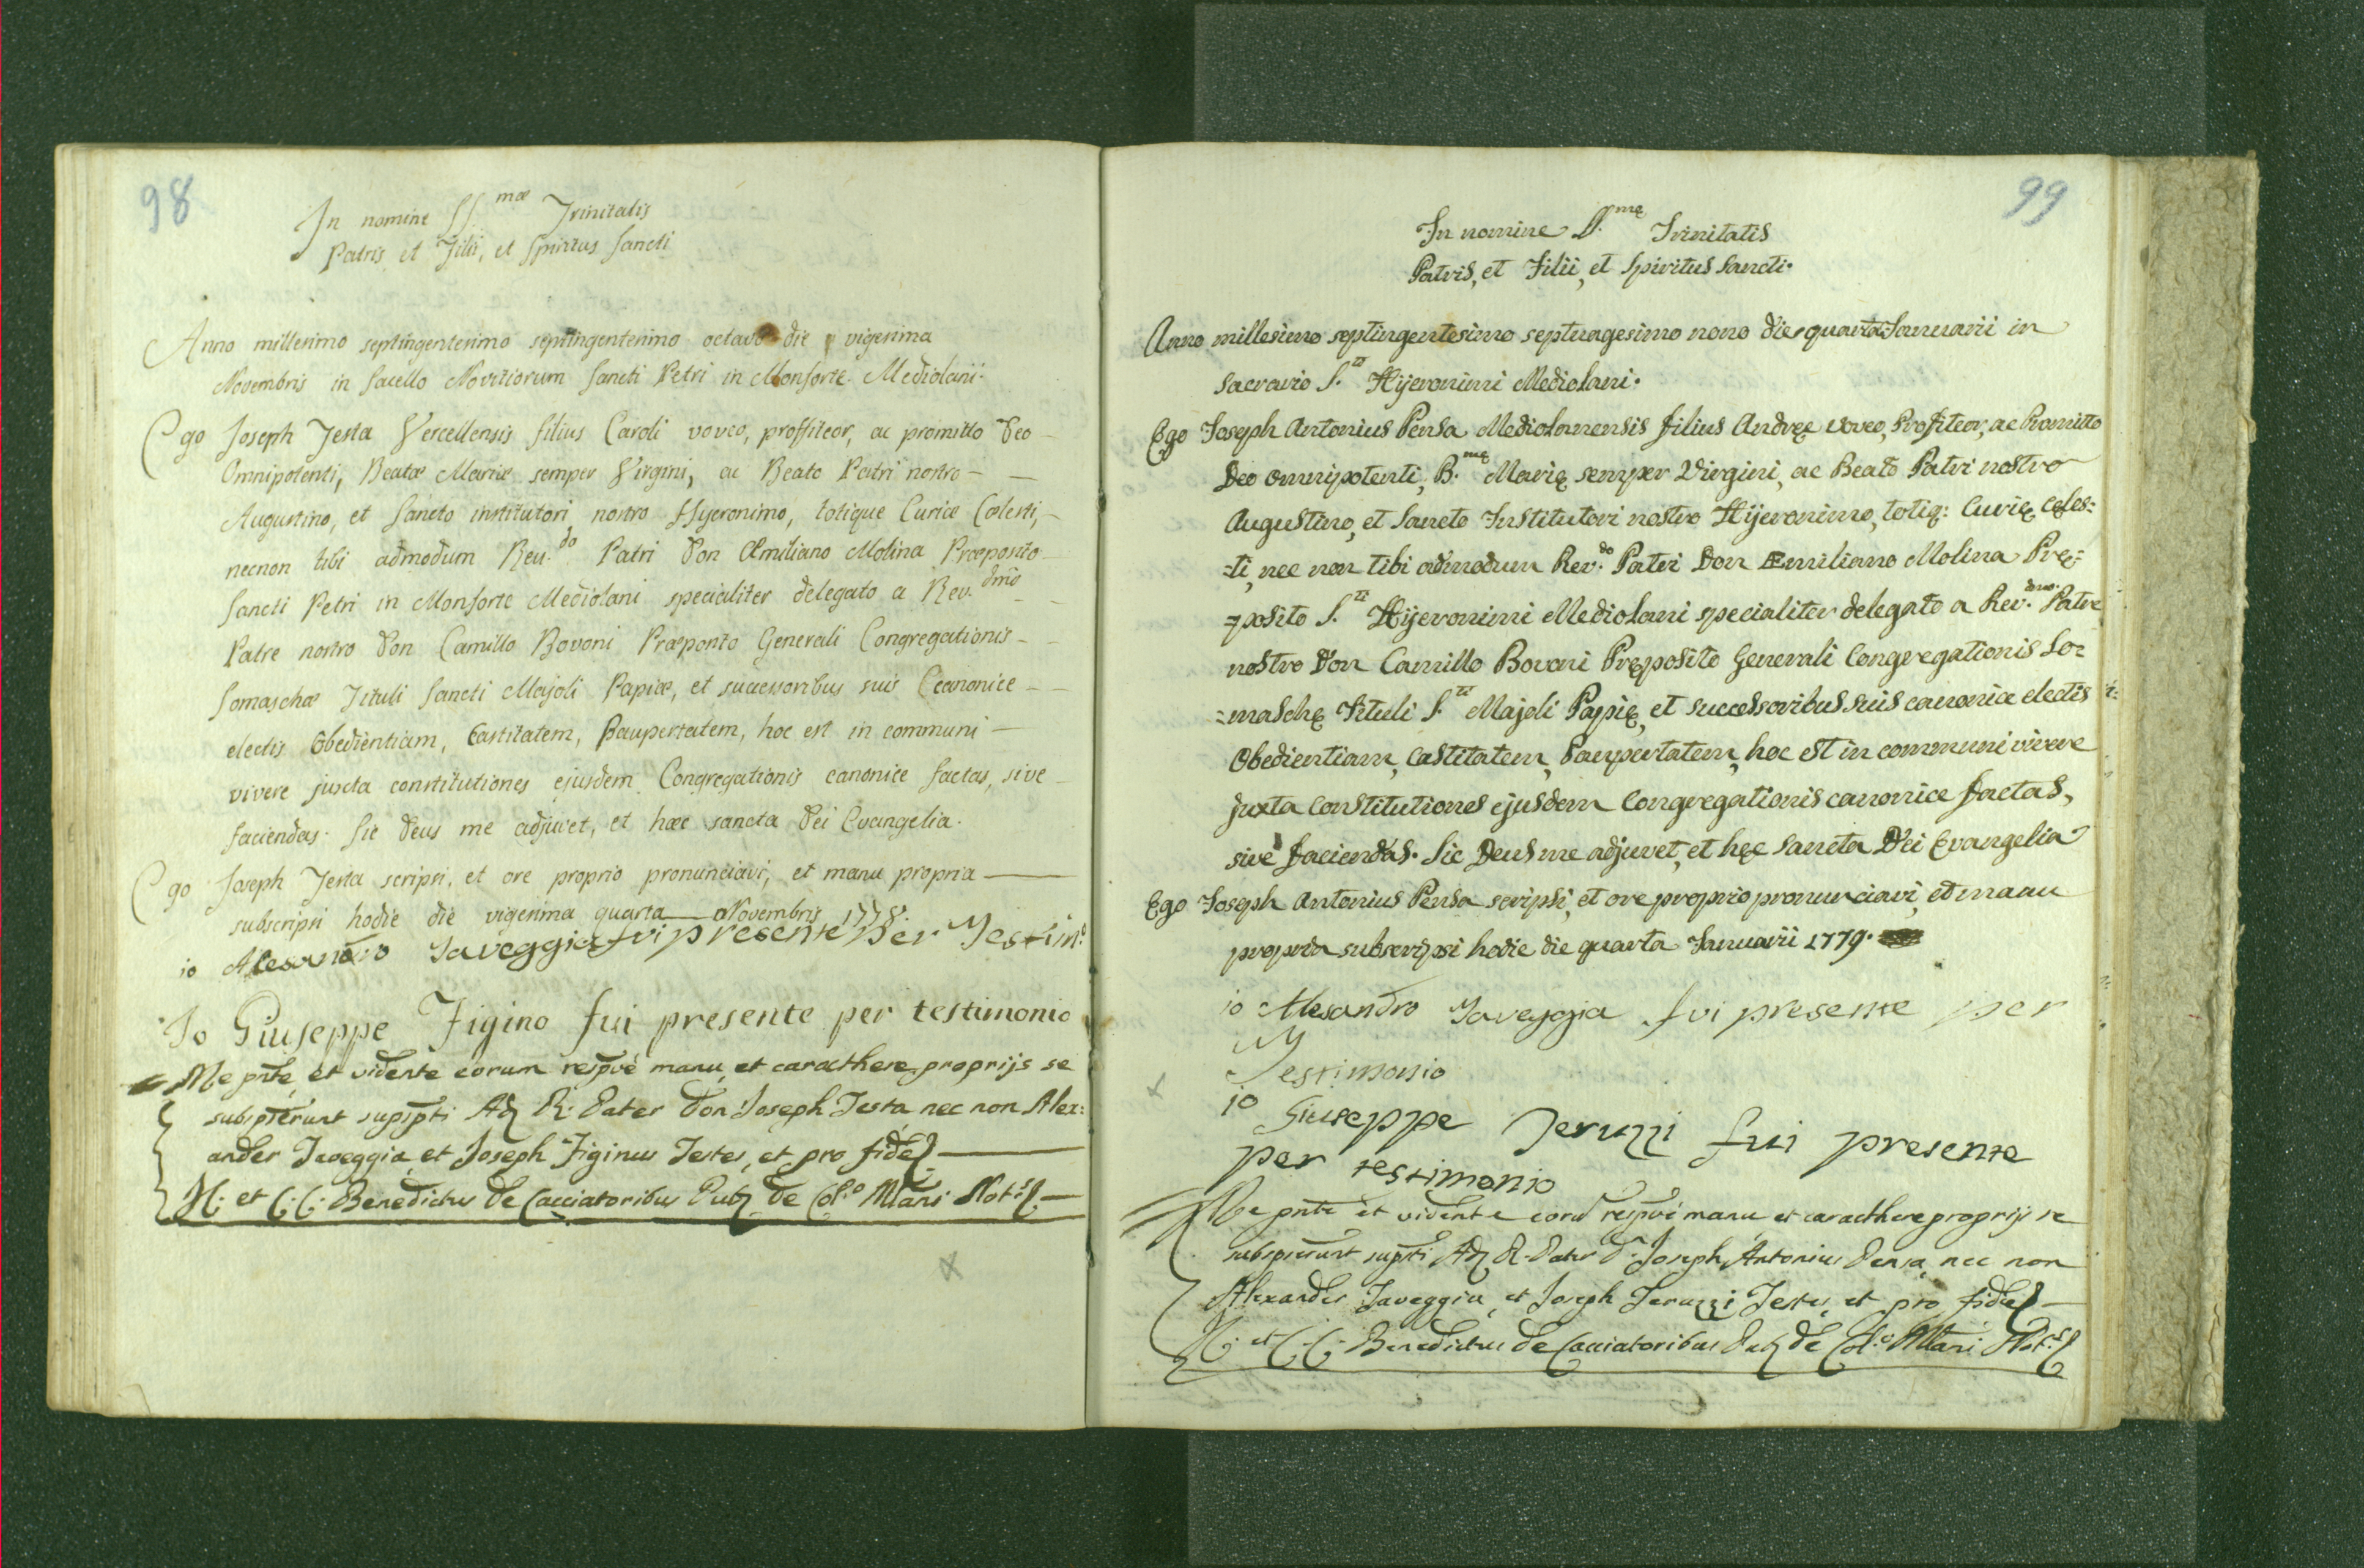 98
In nomine SS.mæ Trinitatis
Patris et Filii, et Spiritus Sancti
Anno millesimo septingentesimo septingentesimo octavo die vigesima
Novembris in Sacello Novitiorum Sancti Petri in Monforte Mediolani.
Ego Joseph Testa Vercellensis filius Caroli voveo, proffiteor, ac promitto Deo
Omnipotenti, Beatæ Mariæ semper Virgini, ac Beato Patri nostro
Augustino, et Sancto institutori nostro Hyeronimo, totique Curiæ Cœlesti,
necnon tibi admodum Reu.do Patri Don Æmiliano Molina Præposito
Sancti Petri in Monforte Mediolani specialiter delegato a Reu.dmo
Patre nostro Don Camillo Bovoni Præposito Generali Congregationis
Somaschæ Tituli Sancti Majoli Papiæ, et successoribus suis Ccanonice
electis Obedientiam, Castitatem, Paupertatem, hoc est in communi
vivere juxta constitutiones ejusdem Congregationis canonice factas, sive
faciendas. Sic Deus me adjuvet, et hæc sancta Dei Evangelia.
Ego Joseph Testa scripsi, et ore proprio pronunciavi, et manu propria
subscripsi hodie die vigesima quarta Novembris 1778.
io Alesandro Taveggia fui presente per Testim.o
Io Giuseppe Figino fui presente per testimonio
Me pnte, et vidente eorum respvè manu, et caracthere proprijs se
subspterunt suppti Ad R. Pater Don Joseph Testa nec non Alex:
ander Taveggia, et Joseph Figinus Testes, et pro fide
N. et C. C. Benedictus de Cacciatoribus Pub de Col.o Mlani Not.s
99
In nomine SS.mę Trinitatis
Patris, et Filii, et Spiritus Sancti.
Anno millesimo septingentesimo septuagesimo nono die quarta Januarii in
sacrario S.ti Hijeronimi Mediolani.
Ego Joseph Antonius Pensa Mediolanensis filius Andreę voveo, Profiteor, ac Promitto
Deo omnipotenti, B.mę Marię semper Virgini, ac Beato Patri nostro
Augustino, et Sancto Institutori nostro Hijeronimo, totiq: Curię Cęles:
-ti, nec non tibi admodum Rev.do Patri Don Æmiliano Molina Prę:
=posito S.ti Hijeronimi Mediolani specialiter delegato a Rev.dmo Patre
nostro Don Camillo Bovoni Pręposito Generali Congregationis So:
=maschę Tituli S.ti Majoli Papię, et successoribus suis canonice electis
Obedientiam, Castitatem, Paupertatem, hoc est in communi vivere
juxta constitutiones ejusdem Congregationis canonice factas,
sive faciendas. Sic Deus me adjuvet, et hęc Sancta Dei Evangelia
Ego Joseph Antonius Pensa scripsi, et ore proprio pronunciavi, et manu
propria subscripsi hodie die quarta Januarii 1779.
io Alesandro Taveggia fui presente per
Testimonio
io Giuseppe Teruzzi fui presente
per testimonio
Me pnte et vidente eoru respvè manu et caracthere proprijs se
subspterunt suppti Ad R. Pater D. Joseph Antonius Pensa, nec non
Alexander Taveggia, et Joseph Teruzzi Testes, et pro fide
N. et C. C. Benedictus de Cacciatoribus Pub de Col.o Mlani Not.s